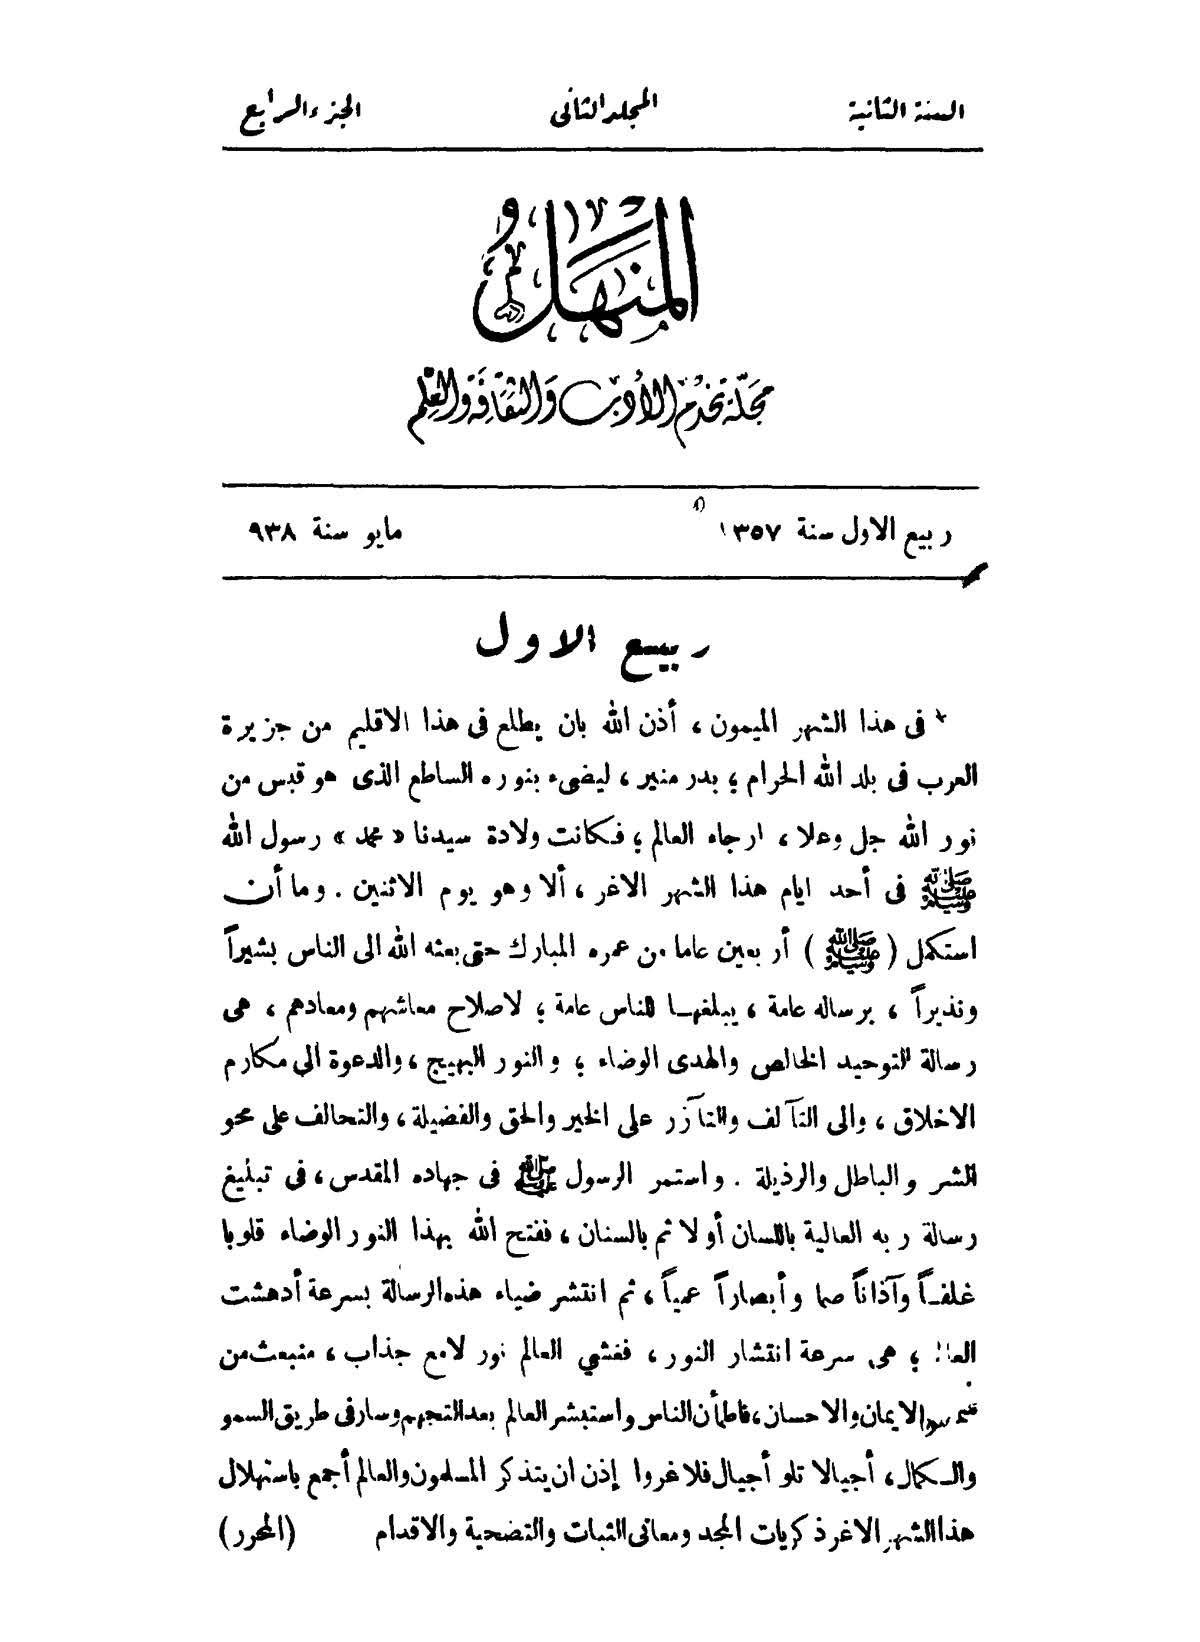 السنة الثانية المجلد الثانى الجزء الرابع
المنهل
مجلة تخدم الأدب والثقافة والعلم
ربيع الاول سنة ١٣٥٧ مايو سنة ٩٣٨
ربيع الاول
فى هذا الشهر الميمون ، أذن الله بان يطلع فى هذا الاقليم من جزيرة
العرب فى بلد الله الحرام ؛ بدر منير ، ليضىء بنوره الساطع الذى هو قبس من
نور الله جل وعلا ، ارجاء العالم ؛ فكانت ولادة سيدنا «محمد» رسول الله
ﷺ فى أحد ايام هذا الشهر الاغر ، ألا وهو يوم الاثنين . وما أن
استكمل (ﷺ) أربعين عاما من عمره المبارك حتى بعثه الله الى الناس بشيراً
ونذيراً ، برساله عامة ، يبلغها للناس عامة ؛ لاصلاح معاشهم ومعادهم ، هى
رسالة التوحيد الخالص والهدى الوضاء ؛ والنور البهيج ، والدعوة الى مكارم
الاخلاق ، والى التآلف والتآزر على الخير والحق والفضيلة ، والتحالف على محو
الشر والباطل والرذيلة . واستمر الرسول ﷺ فى جهاده المقدس ، فى تبليغ
رسالة ربه العالية باللسان أولا ثم بالسنان ، ففتح الله بهذا النور الوضاء قلوبا
غلفاً وآذاناً صما وأبصاراً عمياً ، ثم انتشر ضياء هذه الرسالة بسرعة أدهشت
؛ هى سرعة انتشار النور ، ففشي العالم نور لامع جذاب ، منبعث من
الايمان والاحسان ، فاطمأن الناس واستبشر العالم بعد التجهم وسار فى طريق السمو
والكمال ، أجيالا تلو أجيال فلا غروا إذن ان يتذكر المسلمون والعالم أجمع باستهلال
هذا الشهر الاغر ذكريات المجد ومعانى الثبات والتضحية والاقدام (المحرر)